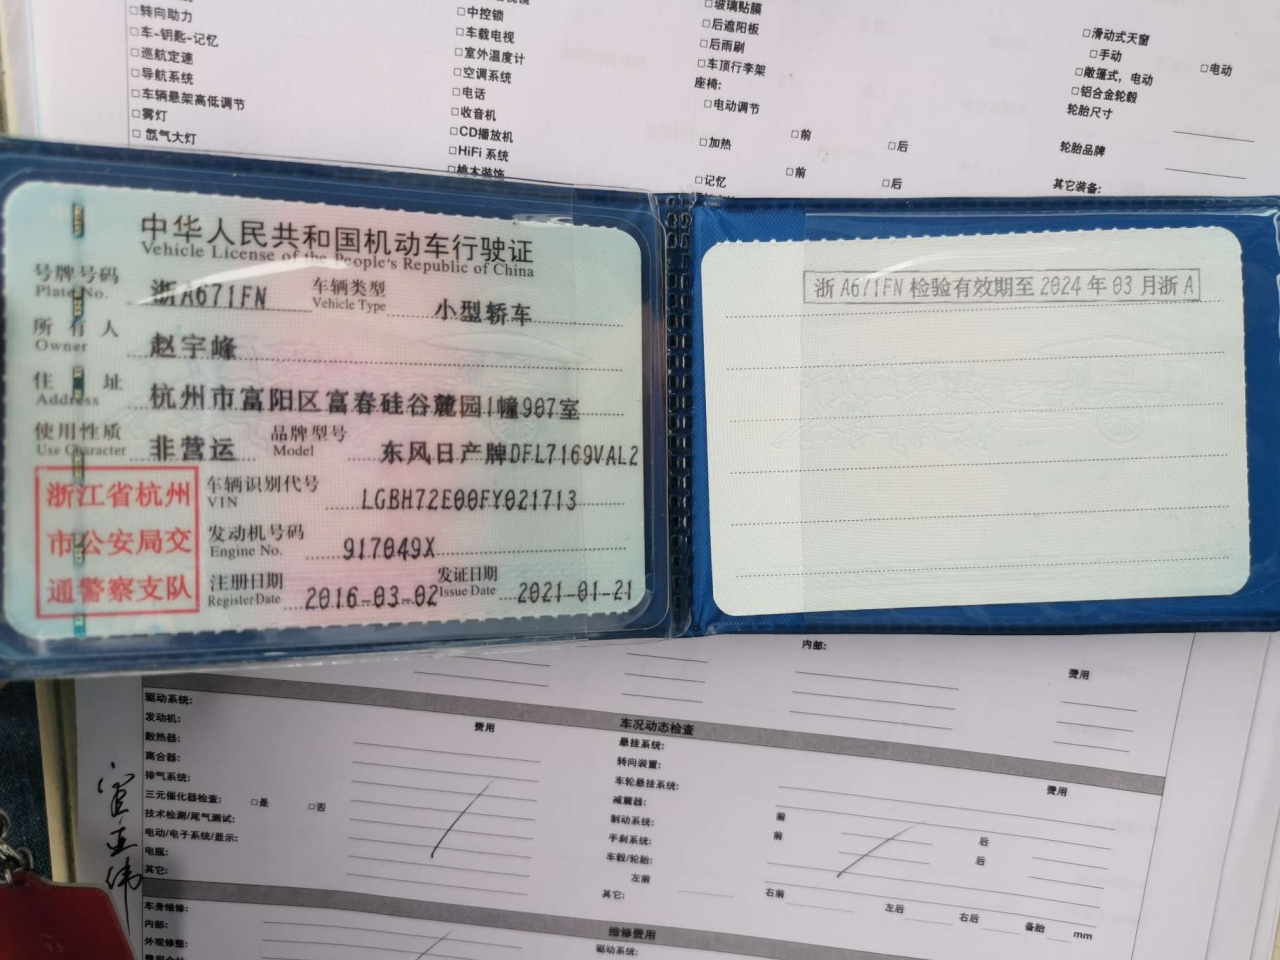 □转向助力
□车-钥匙-记忆
□巡航定速
□导航系统
□车辆悬架高低调节
□雾灯
□氙气大灯
□中控锁
□车载电视
□室外温度计
□空调系统
□电话
□收音机
□CD播放机
□HiFi 系统
□桃木装饰
□玻璃贴膜
□后遮阳板
□后雨刷
□车顶行李架
座椅:
□电动调节
□加热 □前 □后
□记忆 □前 □后
□滑动式天窗
□手动 □电动
□敞篷式，电动
□铝合金轮毂
轮胎尺寸
轮胎品牌
其它装备:
中华人民共和国机动车行驶证
Vehicle License of the People's Republic of China
号牌号码 浙A671FN 车辆类型 小型轿车
Plate No. Vehicle Type
所有人 赵宇峰
Owner
住址 杭州市富阳区富春硅谷麓园1幢907室
Address
使用性质 非营运 品牌型号 东风日产牌DFL7169VAL2
Use Character Model
浙江省杭州
市公安局交
通警察支队
车辆识别代号 LGBH72E00FY021713
VIN
发动机号码 917049X
Engine No.
注册日期 2016-03-02 发证日期 2021-01-21
Register Date Issue Date
浙A671FN检验有效期至2024年03月浙A
内部:
费用
车况动态检查
驱动系统:
发动机: 费用
散热器:
离合器:
排气系统:
三元催化器检查: □是 □否
技术检测/尾气测试:
电动/电子系统/显示:
电瓶:
其它:
悬挂系统:
转向装置: 费用
车轮悬挂系统:
减震器:
制动系统: 前 后
手刹系统: 前 后
车毂/轮胎:
左前 右前 左后 右后 备胎 mm
其它:
维修费用
车身维修:
内部:
外观修整:
驱动系统: